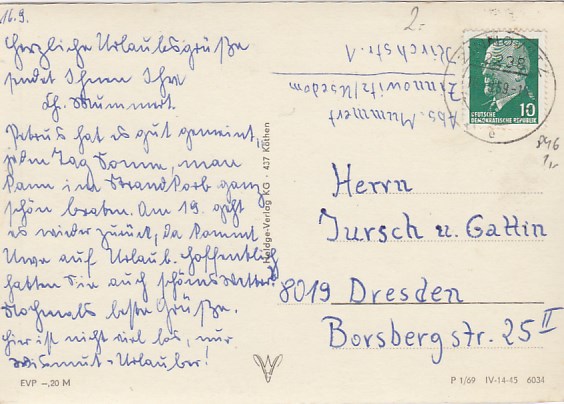 16.9.
Herzliche Urlaubsgrüße
sendet Ihnen Ihre
Ch. Mummert.
Petrus hat es gut gemeint,
jeden Tag Sonne, man
kann im Strandkorb ganz
schön braten. Am 19. geht
es wieder zurück, da kommt
Uwe auf Urlaub. Hoffentlich
hatten Sie auch schönes Wetter.
Nochmals beste Grüße.
Hier ist nicht viel los, nur
Wismut-Urlauber!
EVP –,20 M
Heldge-Verlag KG · 437 Köthen
2.-
Abs. Mummert
Zinnowitz/Usedom
Kirchstr. 1
DEUTSCHE
DEMOKRATISCHE REPUBLIK
10
Herrn
Jursch u. Gattin
8019 Dresden
Borsbergstr. 25 II
P 1/69 IV-14-45 6034